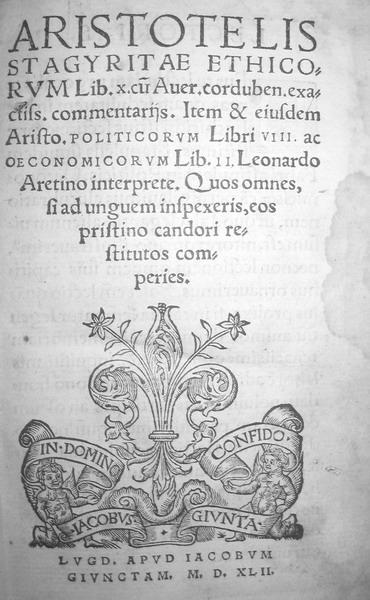 ARISTOTELIS
STAGYRITAE ETHICO-
RVM Lib. x. cũ Auer. corduben. exa-
ctiss. commentarijs. Item & eiusdem
Aristo. POLITICORVM Libri VIII. ac
OECONOMICORVM Lib. II. Leonardo
Aretino interprete. Quos omnes,
si ad unguem inspexeris, eos
pristino candori re-
stitutos com-
peries.
IN·DOMINO
CONFIDO·
IACOBVS
GIVNTA·
LVGD. APVD IACOBVM
GIVNCTAM. M. D. XLII.